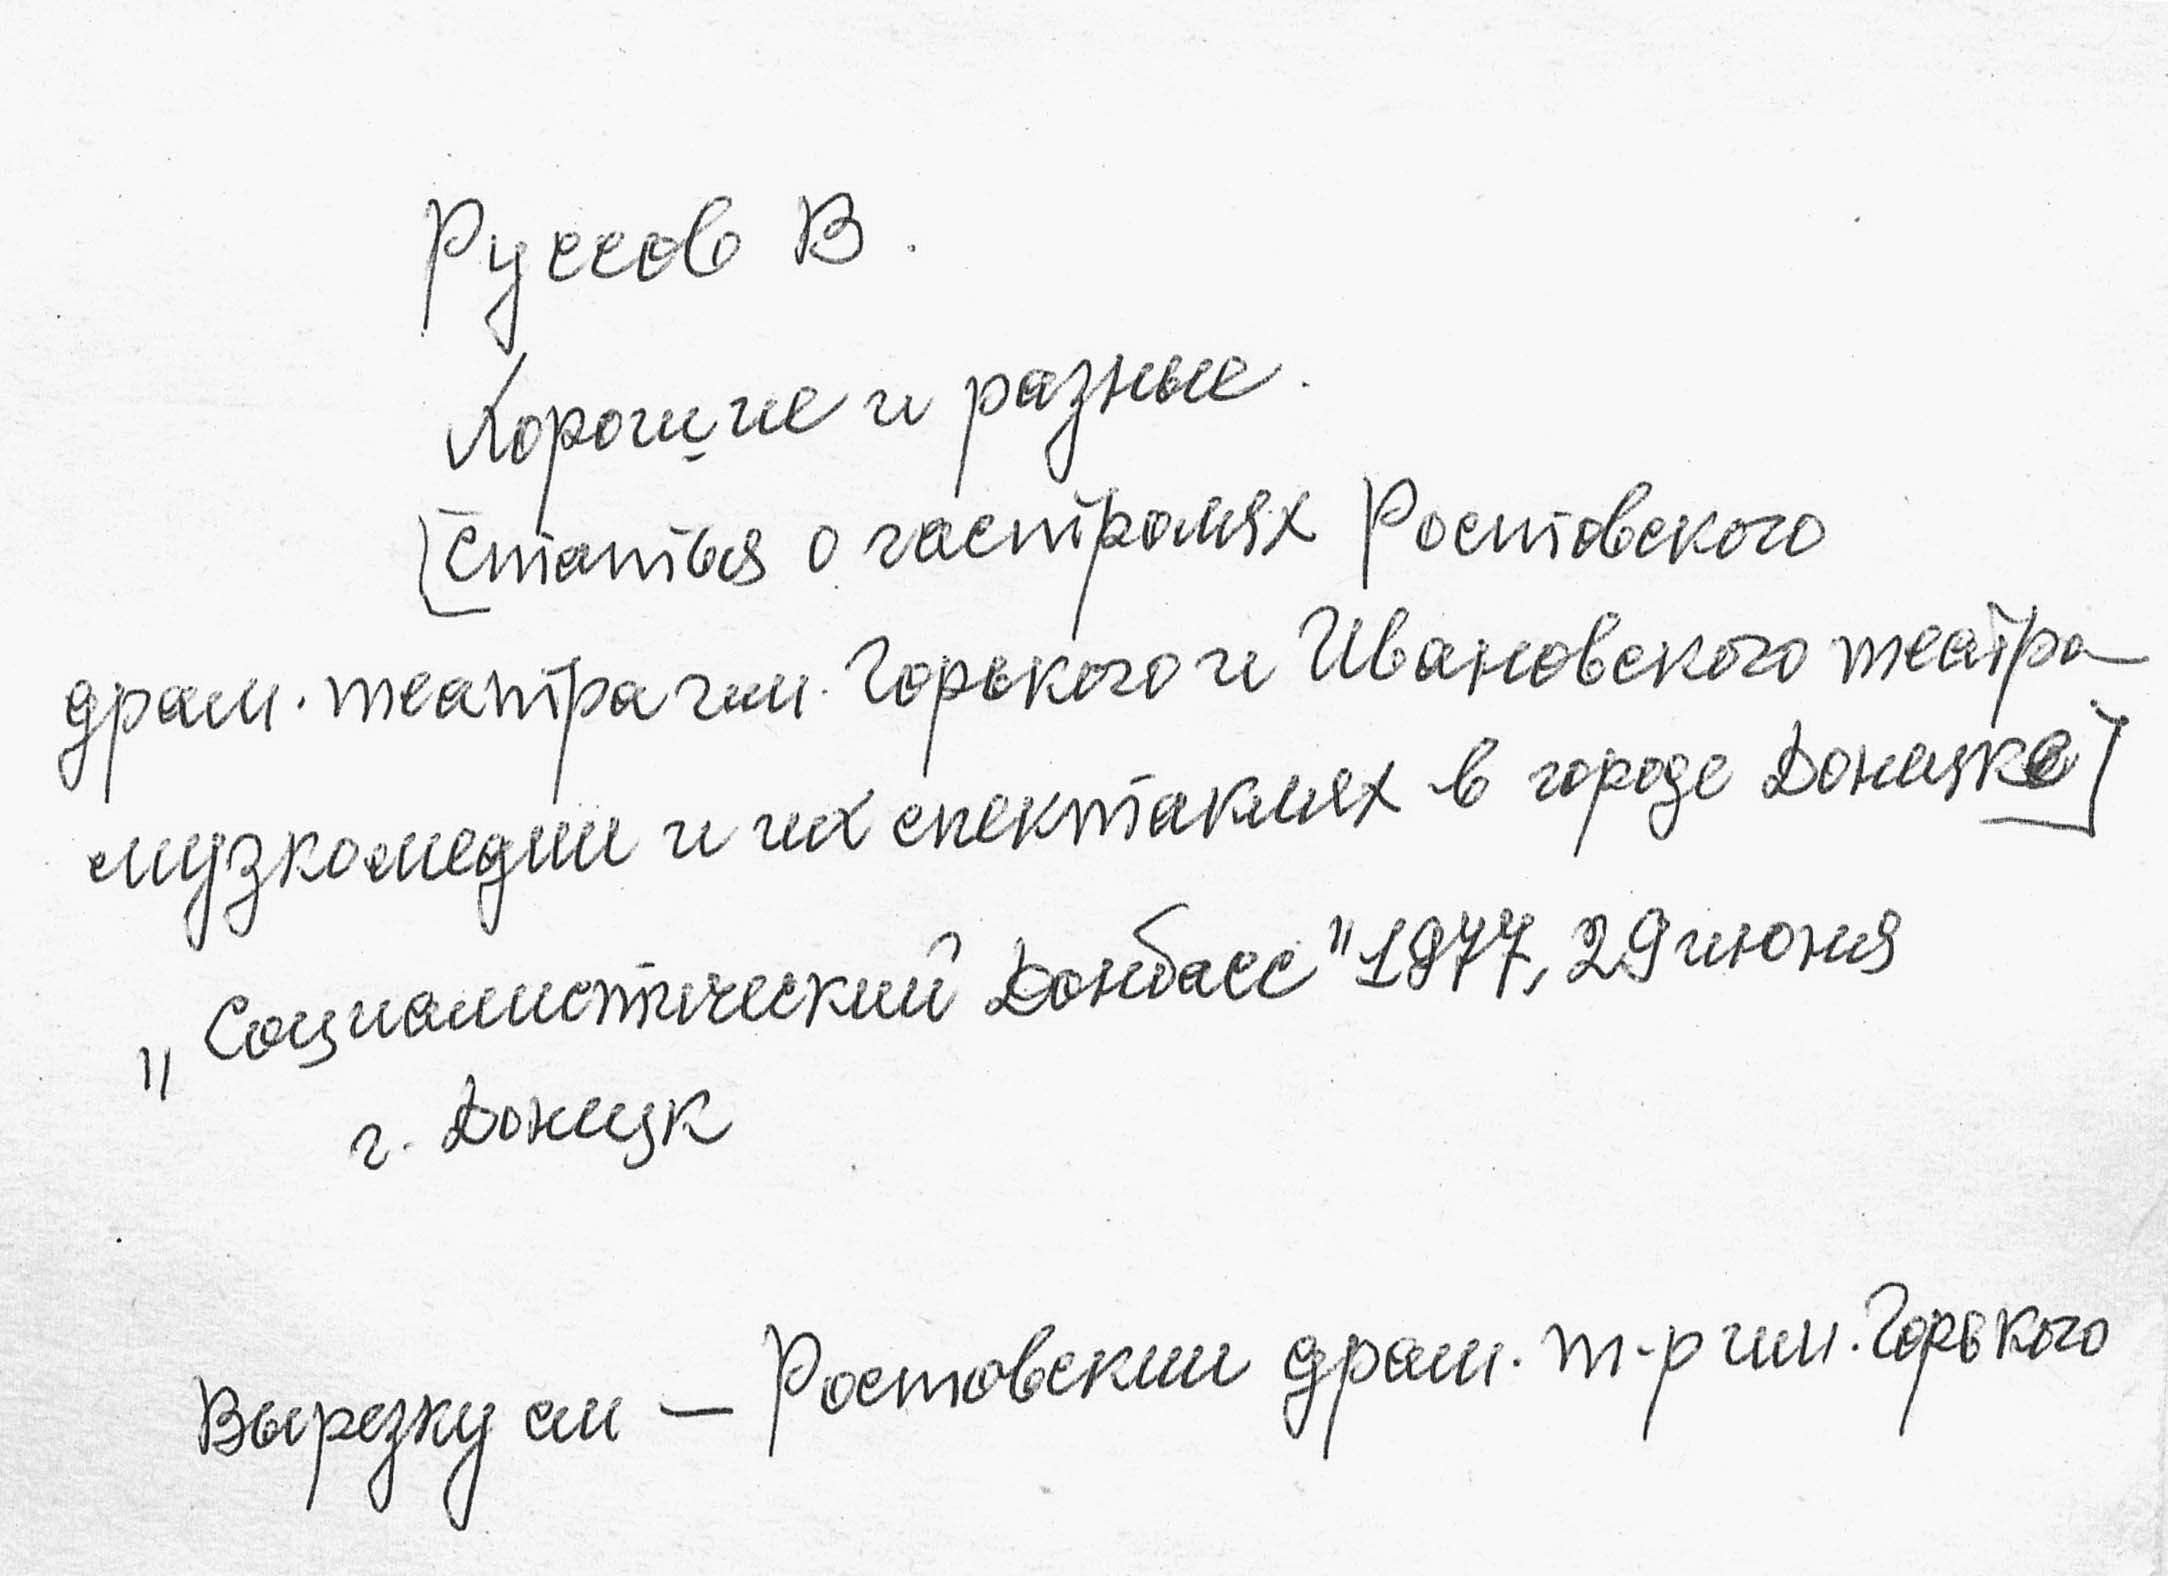 Руссов В.
Хорошие и разные.
[Статья о гастролях Ростовского
драм. театра им. Горького и Ивановского театра
музкомедии и их спектаклях в городе Донецке]
„Социалистический Донбасс" 1977, 29 июня
г. Донецк
Вырезку см — Ростовский драм. т-р им. Горького